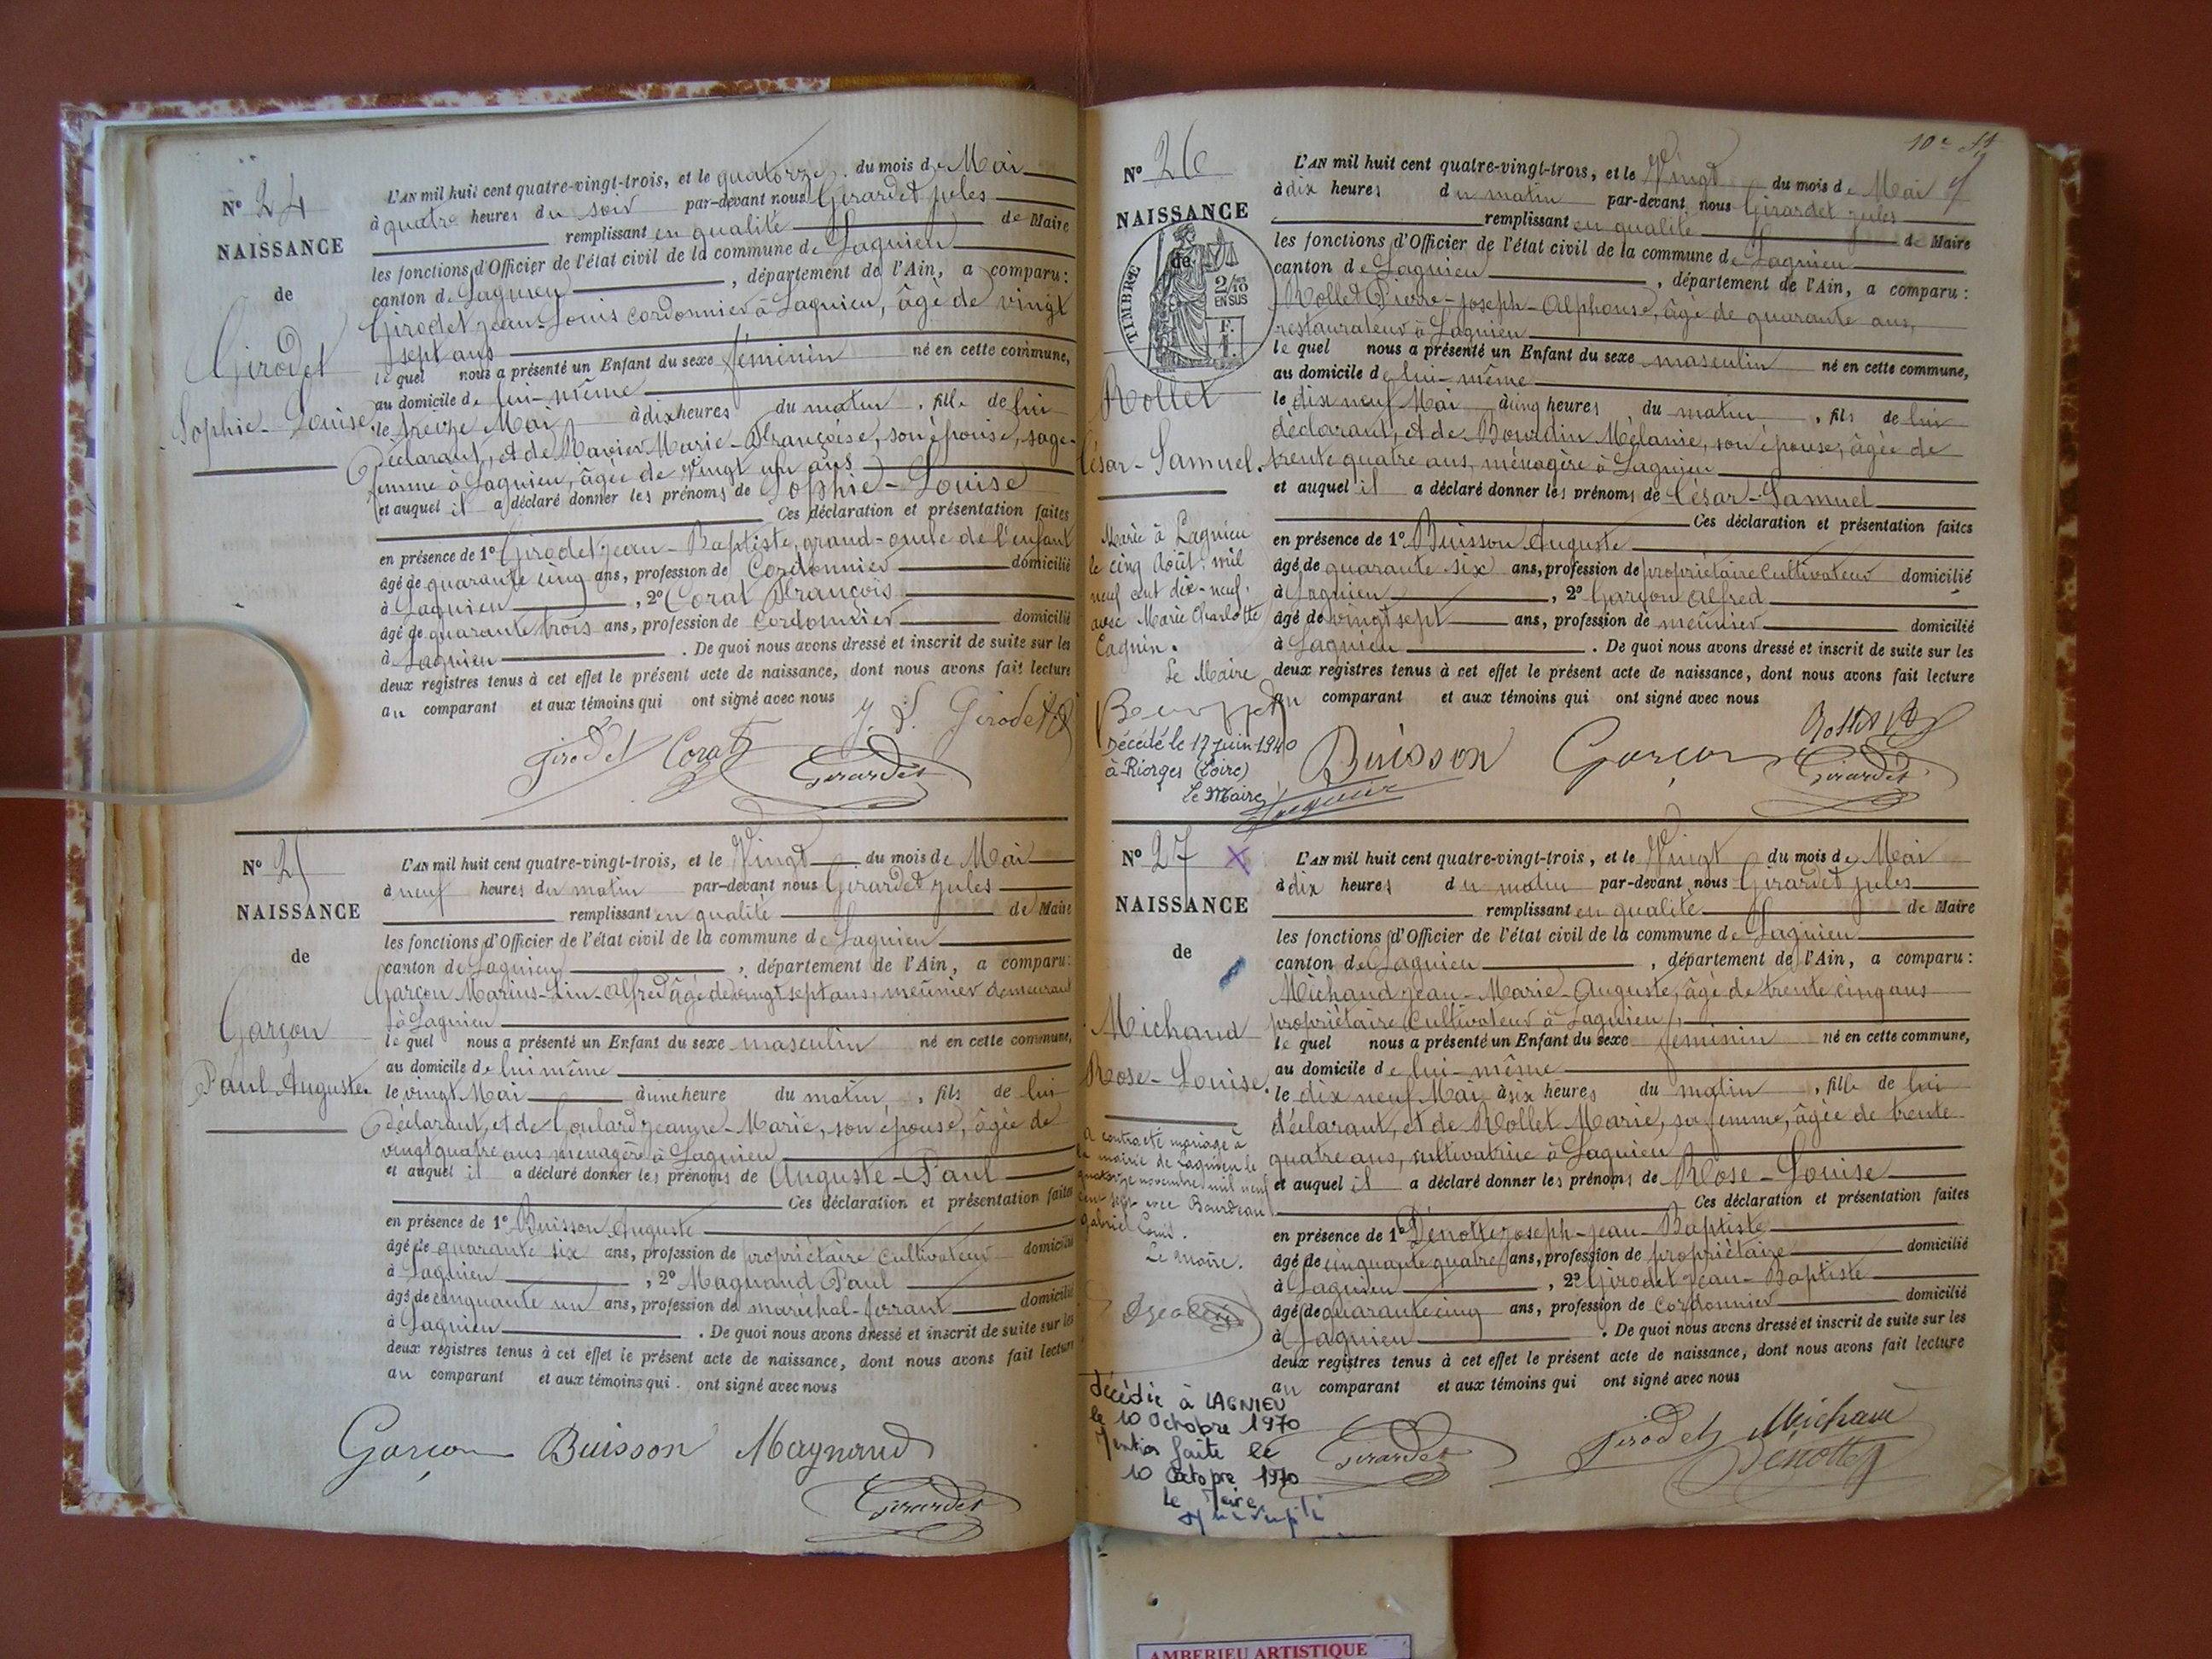 N° 24
NAISSANCE
de
Girodet
Sophie-Louise
L'AN mil huit cent quatre-vingt-trois, et le quatorze du mois de Mai
à quatre heures du soir par-devant nous Girardet Jules
remplissant en qualité de Maire
les fonctions d'Officier de l'état civil de la commune de Lagnieu
canton de Lagnieu, département de l'Ain, a comparu:
Girodet Jean-Louis cordonnier à Lagnieu, âgé de vingt
sept ans
le quel nous a présenté un Enfant du sexe féminin né en cette commune,
au domicile de lui-même
le treize Mai à dix heures du matin, fille de lui
déclarant, et de Marie-Françoise, son épouse, sage-
femme à Lagnieu, âgée de vingt un ans
et auquel il a déclaré donner les prénoms de Sophie-Louise
Ces déclaration et présentation faites
en présence de 1° Girodet Jean-Baptiste, grand-oncle de l'enfant
âgé de quarante cinq ans, profession de Cordonnier domicilié
à Lagnieu, 2° Corat François
âgé de quarante trois ans, profession de Cordonnier domicilié
à Lagnieu. De quoi nous avons dressé et inscrit de suite sur les
deux registres tenus à cet effet le présent acte de naissance, dont nous avons fait lecture
au comparant et aux témoins qui ont signé avec nous
J. L. Girodet
Girodet Corat Girardet
N° 25
NAISSANCE
de
Garçon
Paul Auguste
L'AN mil huit cent quatre-vingt-trois, et le Vingt du mois de Mai
à neuf heures du matin par-devant nous Girardet Jules
remplissant en qualité de Maire
les fonctions d'Officier de l'état civil de la commune de Lagnieu
canton de Lagnieu, département de l'Ain, a comparu:
Garçon Marius-Lin-Alfred âgé de vingt sept ans, meûnier demeurant
à Lagnieu
le quel nous a présenté un Enfant du sexe masculin né en cette commune,
au domicile de lui même
le vingt Mai à une heure du matin, fils de lui
déclarant, et de Goulard Jeanne-Marie, son épouse, âgée de
vingt quatre ans ménagère à Lagnieu
et auquel il a déclaré donner les prénoms de Auguste-Paul
Ces déclaration et présentation faites
en présence de 1° Buisson Auguste
âgé de quarante six ans, profession de propriétaire cultivateur domicilié
à Lagnieu, 2° Magnand Paul
âgé de cinquante un ans, profession de maréchal-ferrant domicilié
à Lagnieu. De quoi nous avons dressé et inscrit de suite sur les
deux registres tenus à cet effet le présent acte de naissance, dont nous avons fait lecture
au comparant et aux témoins qui ont signé avec nous
Garçon Buisson Magnand
Girardet
N° 26
NAISSANCE
de
TIMBRE
2/10
EN SUS
Rollet
César-Samuel.
Marié à Lagnieu
le cinq Août mil
neuf cent dix-neuf.
avec Marie Charlotte
Cagnin.
Le Maire
Décédé le 17 Juin 1940
à Riorges (Loire)
Le Maire
L'AN mil huit cent quatre-vingt-trois, et le Vingt du mois de Mai
à dix heures du matin par-devant nous Girardet Jules
remplissant en qualité de Maire
les fonctions d'Officier de l'état civil de la commune de Lagnieu
canton de Lagnieu, département de l'Ain, a comparu:
Rollet Pierre-Joseph-Alphonse, âgé de quarante ans,
restaurateur à Lagnieu
le quel nous a présenté un Enfant du sexe masculin né en cette commune,
au domicile de lui-même
le dix neuf Mai à cinq heures du matin, fils de lui
déclarant, et de Bourdin Mélanie, son épouse, âgée de
trente quatre ans, ménagère à Lagnieu
et auquel il a déclaré donner les prénoms de César-Samuel
Ces déclaration et présentation faites
en présence de 1° Buisson Auguste
âgé de quarante six ans, profession de propriétaire Cultivateur domicilié
à Lagnieu, 2° Garçon Alfred
âgé de vingt sept ans, profession de meûnier domicilié
à Lagnieu. De quoi nous avons dressé et inscrit de suite sur les
deux registres tenus à cet effet le présent acte de naissance, dont nous avons fait lecture
au comparant et aux témoins qui ont signé avec nous
Rollet
Buisson Garçon Girardet
N° 27
NAISSANCE
de
Michaud
Rose-Louise.
A contracté mariage à
la mairie de Lagnieu le
quatorze novembre mil neuf
cent sept avec Bourdeau
Gabriel Louis.
Le Maire.
Décédée à LAGNIEU
le 10 Octobre 1970
Mention faite le
10 Octobre 1970
le Maire
L'AN mil huit cent quatre-vingt-trois, et le Vingt du mois de Mai
à dix heures du matin par-devant nous Girardet Jules
remplissant en qualité de Maire
les fonctions d'Officier de l'état civil de la commune de Lagnieu
canton de Lagnieu, département de l'Ain, a comparu:
Michaud Jean-Marie-Auguste, âgé de trente cinq ans
propriétaire Cultivateur à Lagnieu,
le quel nous a présenté un Enfant du sexe féminin né en cette commune,
au domicile de lui-même
le dix neuf Mai à six heures du matin, fille de lui
déclarant, et de Rollet Marie, sa femme, âgée de trente
quatre ans, cultivatrice à Lagnieu
et auquel il a déclaré donner les prénoms de Rose-Louise
Ces déclaration et présentation faites
en présence de 1° Dénotte Joseph-Jean-Baptiste
âgé de cinquante quatre ans, profession de propriétaire domicilié
à Lagnieu, 2° Girodet Jean-Baptiste
âgé de quarante cinq ans, profession de Cordonnier domicilié
à Lagnieu. De quoi nous avons dressé et inscrit de suite sur les
deux registres tenus à cet effet le présent acte de naissance, dont nous avons fait lecture
au comparant et aux témoins qui ont signé avec nous
Girardet Girodet Michaud
Dénotte
AMBERIEU ARTISTIQUE